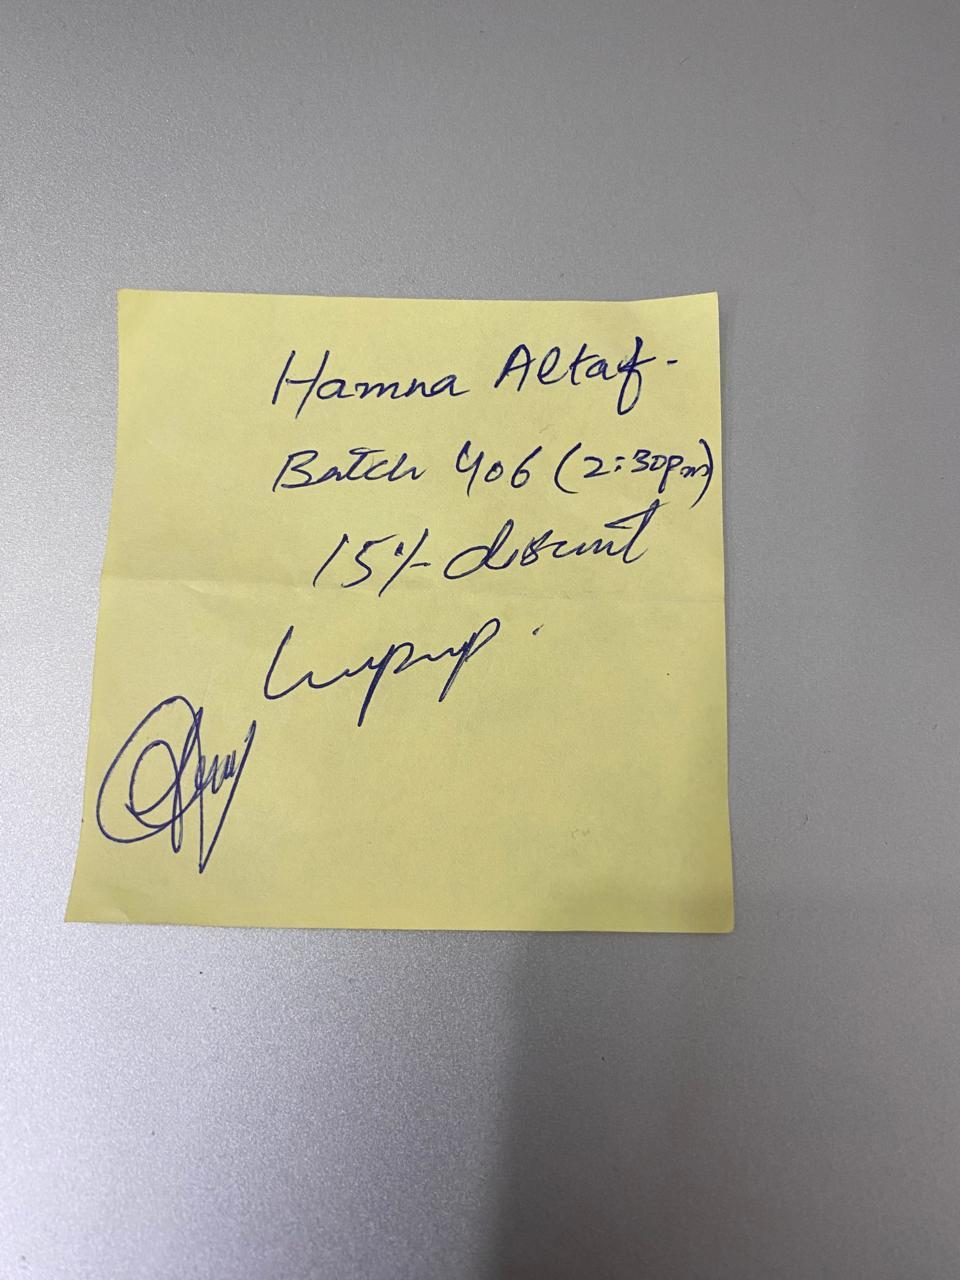 Hamna Altaf.
Batch 406 (2:30pm)
15% discount